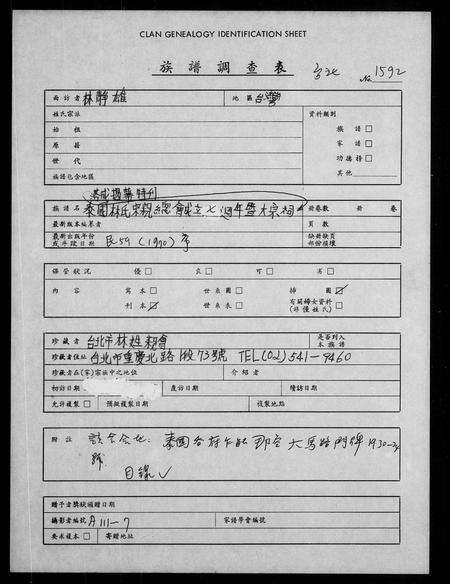 CLAN GENEALOGY IDENTIFICATION SHEET
族譜調查表
No. 1592
面訪者 林靜雄 地區 台灣
姓氏宗派 資料類別
始祖 族譜 □
原籍 家譜 □
世代 功德榜 □
族譜包含地區 其他
落成揭幕特刊
族譜名 泰國林氏宗親總會成立七週年暨大宗祠 冊卷數 冊 卷
最新版本編著者 頁數
最新出版年份或手段日期 民59 (1970) 序 缺冊缺頁部份損壞
保管狀況 優 □ 良 □ 可 □ 劣 □
內容 寫本 □ 世系圖 □ 插圖 ☑
刊本 ☑ 世系表 □ 有關婦女資料 □
(非僅姓氏)
珍藏者 台北市林姓宗親會 是否列入本族譜
珍藏者住址 台北市重慶北路1段73號 TEL(02)541-9460
珍藏者在(家)宗族中之地位 介紹者
初訪日期 覆訪日期 續訪日期
允許複製 □ 預擬複製日期 複製地點
附註 該會会址: 泰國 大馬路門牌1930-34
號
目錄✓
贈予者獎狀頒贈日期
攝影者編號 A111-7 家譜學會編號
要求複本 □ 寄贈地址